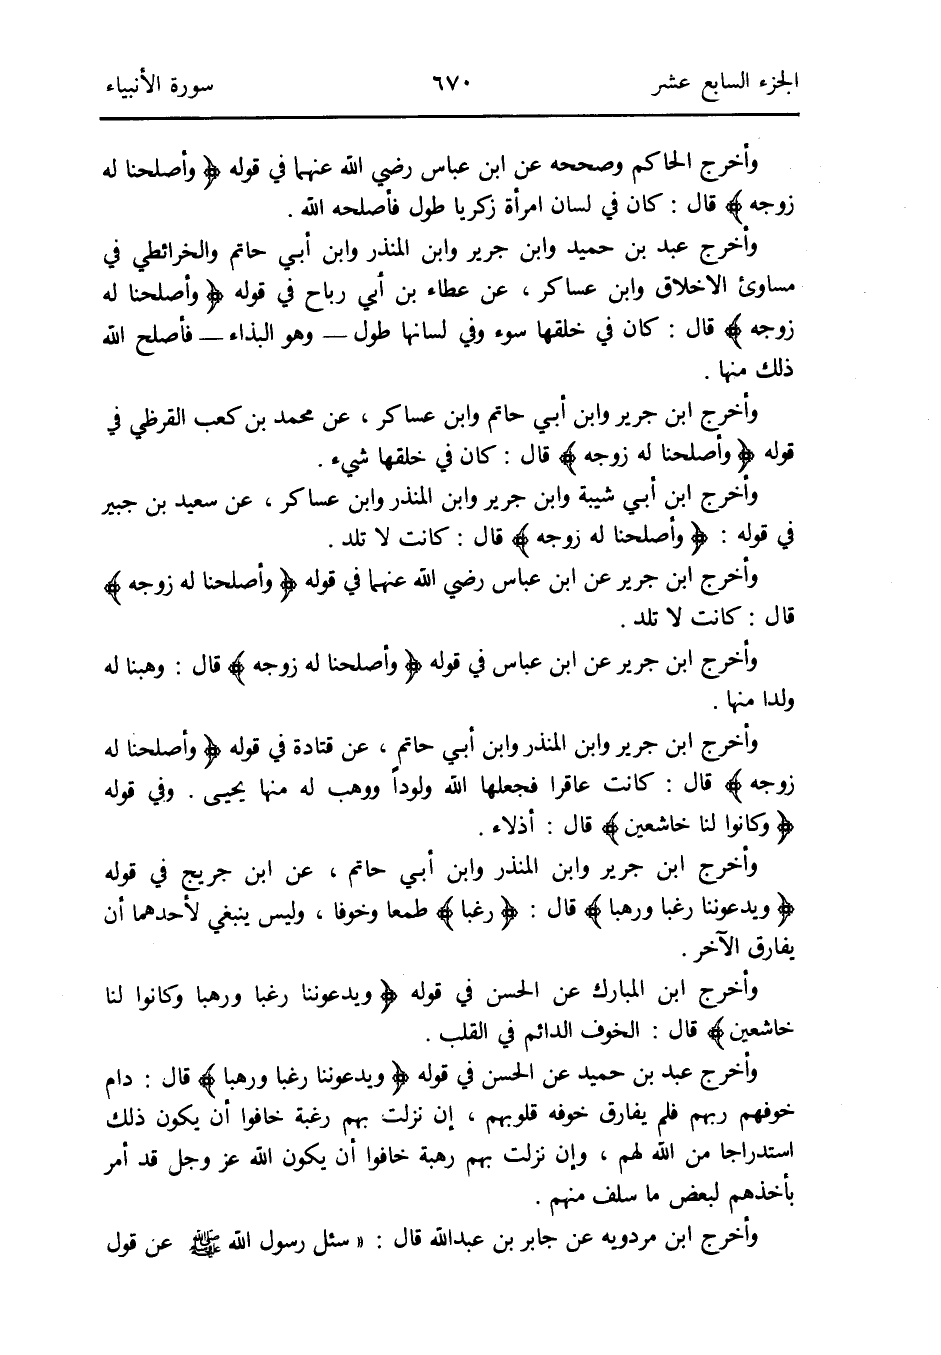 الجزء السابع عشر ٦٧٠ سورة الأنبياء
وأخرج الحاكم وصححه عن ابن عباس رضي الله عنهما في قوله ﴿ وأصلحنا له
زوجه ﴾ قال : كان في لسان امرأة زكريا طول فأصلحه الله .
وأخرج عبد بن حميد وابن جرير وابن المنذر وابن أبي حاتم والخرائطي في
مساوئ الاخلاق وابن عساكر ، عن عطاء بن أبي رباح في قوله ﴿ وأصلحنا له
زوجه ﴾ قال : كان في خلقها سوء وفي لسانها طول — وهو البذاء — فأصلح الله
ذلك منها .
وأخرج ابن جرير وابن أبي حاتم وابن عساكر ، عن محمد بن كعب القرظي في
قوله ﴿ وأصلحنا له زوجه ﴾ قال : كان في خلقها شيء .
وأخرج ابن أبي شيبة وابن جرير وابن المنذر وابن عساكر ، عن سعيد بن جبير
في قوله : ﴿ وأصلحنا له زوجه ﴾ قال : كانت لا تلد .
وأخرج ابن جرير عن ابن عباس رضي الله عنهما في قوله ﴿ وأصلحنا له زوجه ﴾
قال : كانت لا تلد .
وأخرج ابن جرير عن ابن عباس في قوله ﴿ وأصلحنا له زوجه ﴾ قال : وهبنا له
ولدا منها .
وأخرج ابن جرير وابن المنذر وابن أبي حاتم ، عن قتادة في قوله ﴿ وأصلحنا له
زوجه ﴾ قال : كانت عاقرا فجعلها الله ولوداً ووهب له منها يحيى . وفي قوله
﴿ وكانوا لنا خاشعين ﴾ قال : أذلاء .
وأخرج ابن جرير وابن المنذر وابن أبي حاتم ، عن ابن جريج في قوله
﴿ ويدعوننا رغبا ورهبا ﴾ قال : ﴿ رغبا ﴾ طمعا وخوفا ، وليس ينبغي لأحدهما أن
يفارق الآخر .
وأخرج ابن المبارك عن الحسن في قوله ﴿ ويدعوننا رغبا ورهبا وكانوا لنا
خاشعين ﴾ قال : الخوف الدائم في القلب .
وأخرج عبد بن حميد عن الحسن في قوله ﴿ ويدعوننا رغبا ورهبا ﴾ قال : دام
خوفهم ربهم فلم يفارق خوفه قلوبهم ، إن نزلت بهم رغبة خافوا أن يكون ذلك
استدراجا من الله لهم ، وإن نزلت بهم رهبة خافوا أن يكون الله عز وجل قد أمر
بأخذهم لبعض ما سلف منهم .
وأخرج ابن مردويه عن جابر بن عبدالله قال : « سئل رسول الله ﷺ عن قول